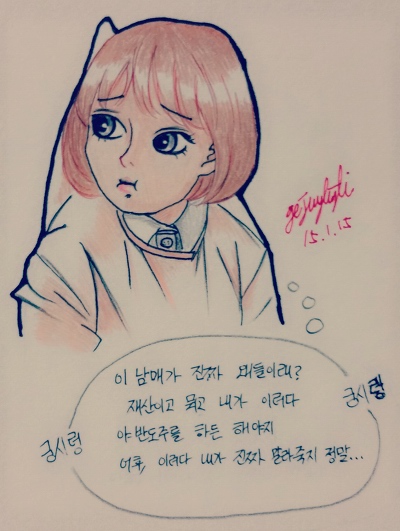 15.1.15
이 남매가 진짜 왜들이래?
재산이고 뭐고 내가 이러다
야반도주를 하든 해야지
어휴, 이러다 내가 진짜 말라죽지 정말...
궁시렁
궁시렁